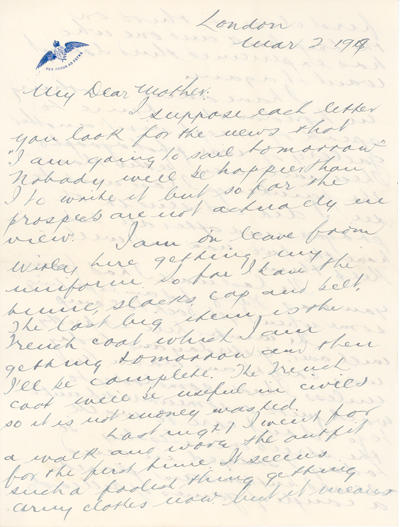 London
Mar 2 1919
My Dear Mother:
I suppose each letter
you look for the news that
"I am going to sail tomorrow"
Nobody will be happier than
I to write it but so far the
prospects are not actually in
view. I am on leave from
Witley here getting my
uniform. So far I have the
tunic, slacks, cap and belt.
The last big item is the
Trench coat which I am
getting tomorrow and then
I'll be complete. The Trench
coat will be useful in civies
so it is not money wasted.
Last night I went for
a walk and wore the outfit
for the first time. It seems
such a foolish thing getting
army clothes now but it means